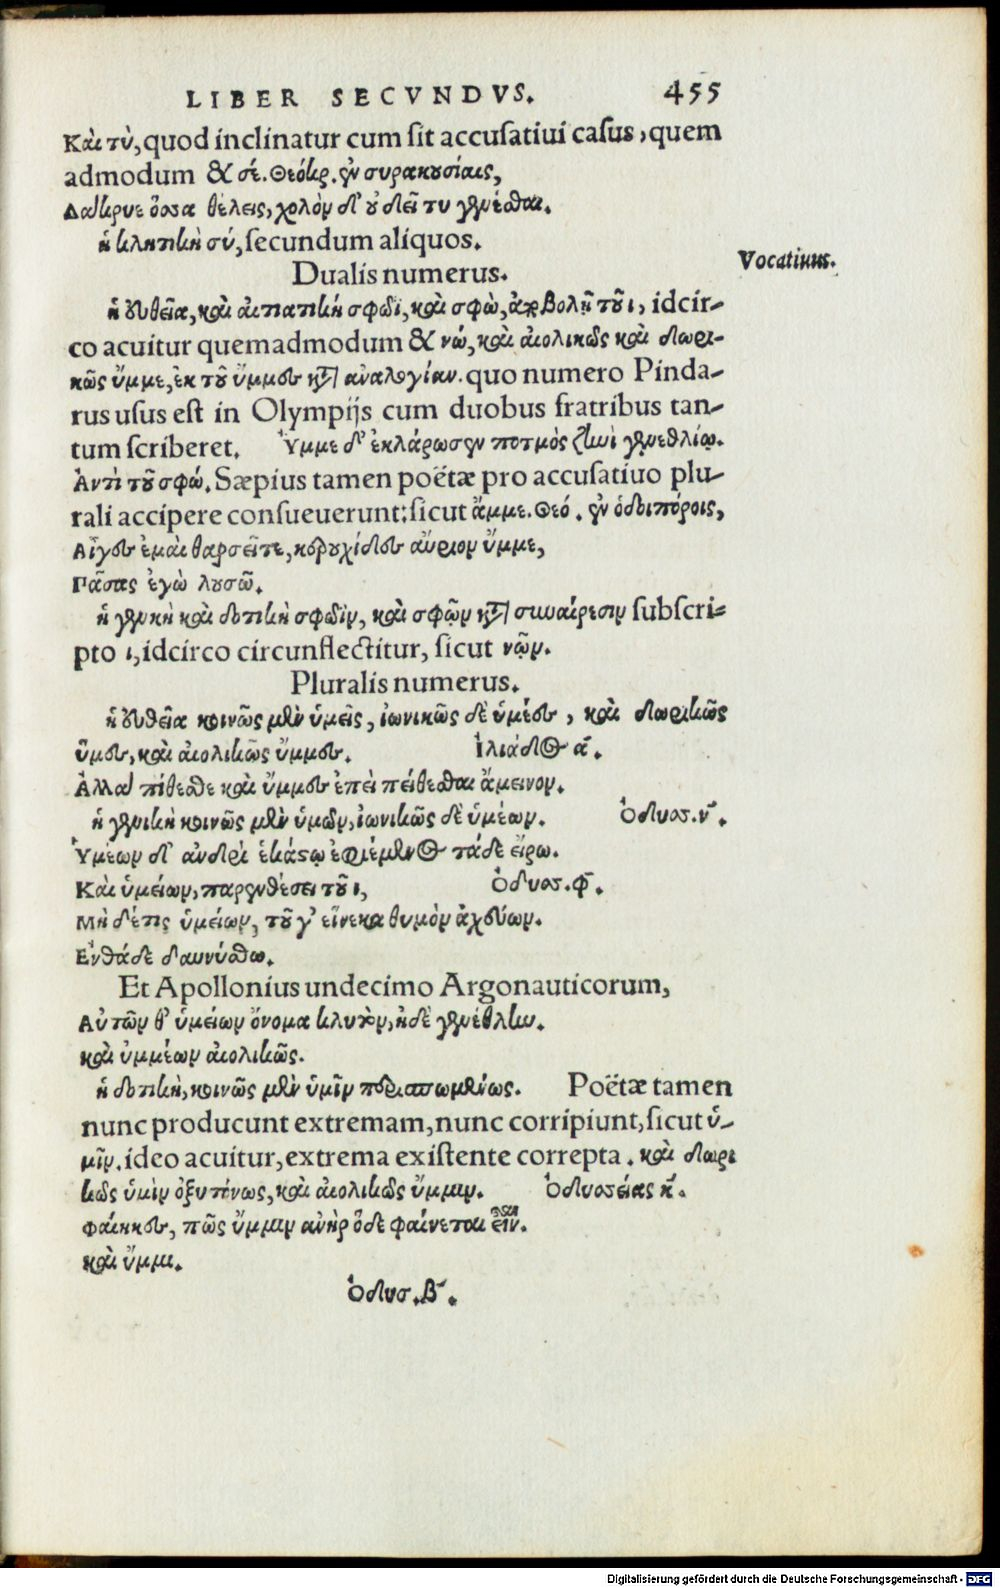 LIBER SECVNDVS. 455
Καὶ τὺ, quod inclinatur cum sit accusatiui casus, quem
admodum & σέ. Θεόκρ. ἐν συρακουσίαις,
Δάκρυε ὅσσα θέλεις, χολὸν δ' οὐ δεῖ τυ γενέσθαι.
ἡ κλητικὴ σύ, secundum aliquos.
Vocatiuus.
Dualis numerus.
ἡ εὐθεῖα, καὶ αἰτιατικὴ σφῶϊ, καὶ σφὼ, ἀποβολῇ τοῦ ι, idcir-
co acuitur quemadmodum & νώ, καὶ αἰολικῶς καὶ δωρι-
κῶς ὔμμε, ἐκ τοῦ ὔμμες κατ' ἀναλογίαν. quo numero Pinda-
rus usus est in Olympijs cum duobus fratribus tan-
tum scriberet. Υ̓́μμε δ' ἐκλάρωσεν ποτμὸς ζηνὶ γενεθλίῳ.
Ἀντὶ τοῦ σφώ. Sæpius tamen poëtæ pro accusatiuo plu-
rali accipere consueuerunt: sicut ἄμμε. Θεό. ἐν ὁδοιπόροις,
Αἶγες ἐμαὶ θαρσεῖτε, κερουχίδες αὔριον ὔμμε,
Πάσας ἐγὼ λουσῶ.
ἡ γενικὴ καὶ δοτικὴ σφῶϊν, καὶ σφῷν κατὰ συναίρεσιν subscri-
pto ι, idcirco circunflectitur, sicut νῷν.
Pluralis numerus.
ἡ εὐθεῖα κοινῶς μὲν ὑμεῖς, ἰωνικῶς δὲ ὑμέες, καὶ δωρικῶς
ὗμες, καὶ αἰολικῶς ὔμμες. Ἰλιάδος α.
Ἀλλὰ πίθεσθε καὶ ὔμμες ἐπεὶ πείθεσθαι ἄμεινον.
ἡ γενικὴ κοινῶς μὲν ὑμῶν, ἰωνικῶς δὲ ὑμέων. Ὀδυσσ. ν.
Ὑμέων δ' ἀνδρὶ ἑκάστῳ ἐφιέμενος τάδε εἴρω.
Καὶ ὑμείων, παρενθέσει τοῦ ι, Ὀδυσσ. φ.
Μηδέτις ὑμείων, τοῦ γ' εἵνεκα θυμὸν ἀχεύων.
Ἐνθάδε δαινύσθω.
Et Apollonius undecimo Argonauticorum,
Αὐτῶν θ' ὑμείων ὄνομα κλυτὸν, ἠδὲ γενέθλην.
καὶ ὑμμέων αἰολικῶς.
ἡ δοτικὴ, κοινῶς μὲν ὑμῖν περισπωμένως. Poëtæ tamen
nunc producunt extremam, nunc corripiunt, sicut ὑ-
μῖν. ideo acuitur, extrema existente correpta. καὶ δωρι
κῶς ὑμὶν ὀξυτόνως, καὶ αἰολικῶς ὔμμιν. Ὀδυσσείας κ.
Φαίηκες, πῶς ὔμμιν ἀνὴρ ὅδε φαίνεται εἶν.
καὶ ὔμμι.
Ὀδυσ. β.
Digitalisierung gefördert durch die Deutsche Forschungsgemeinschaft - DFG